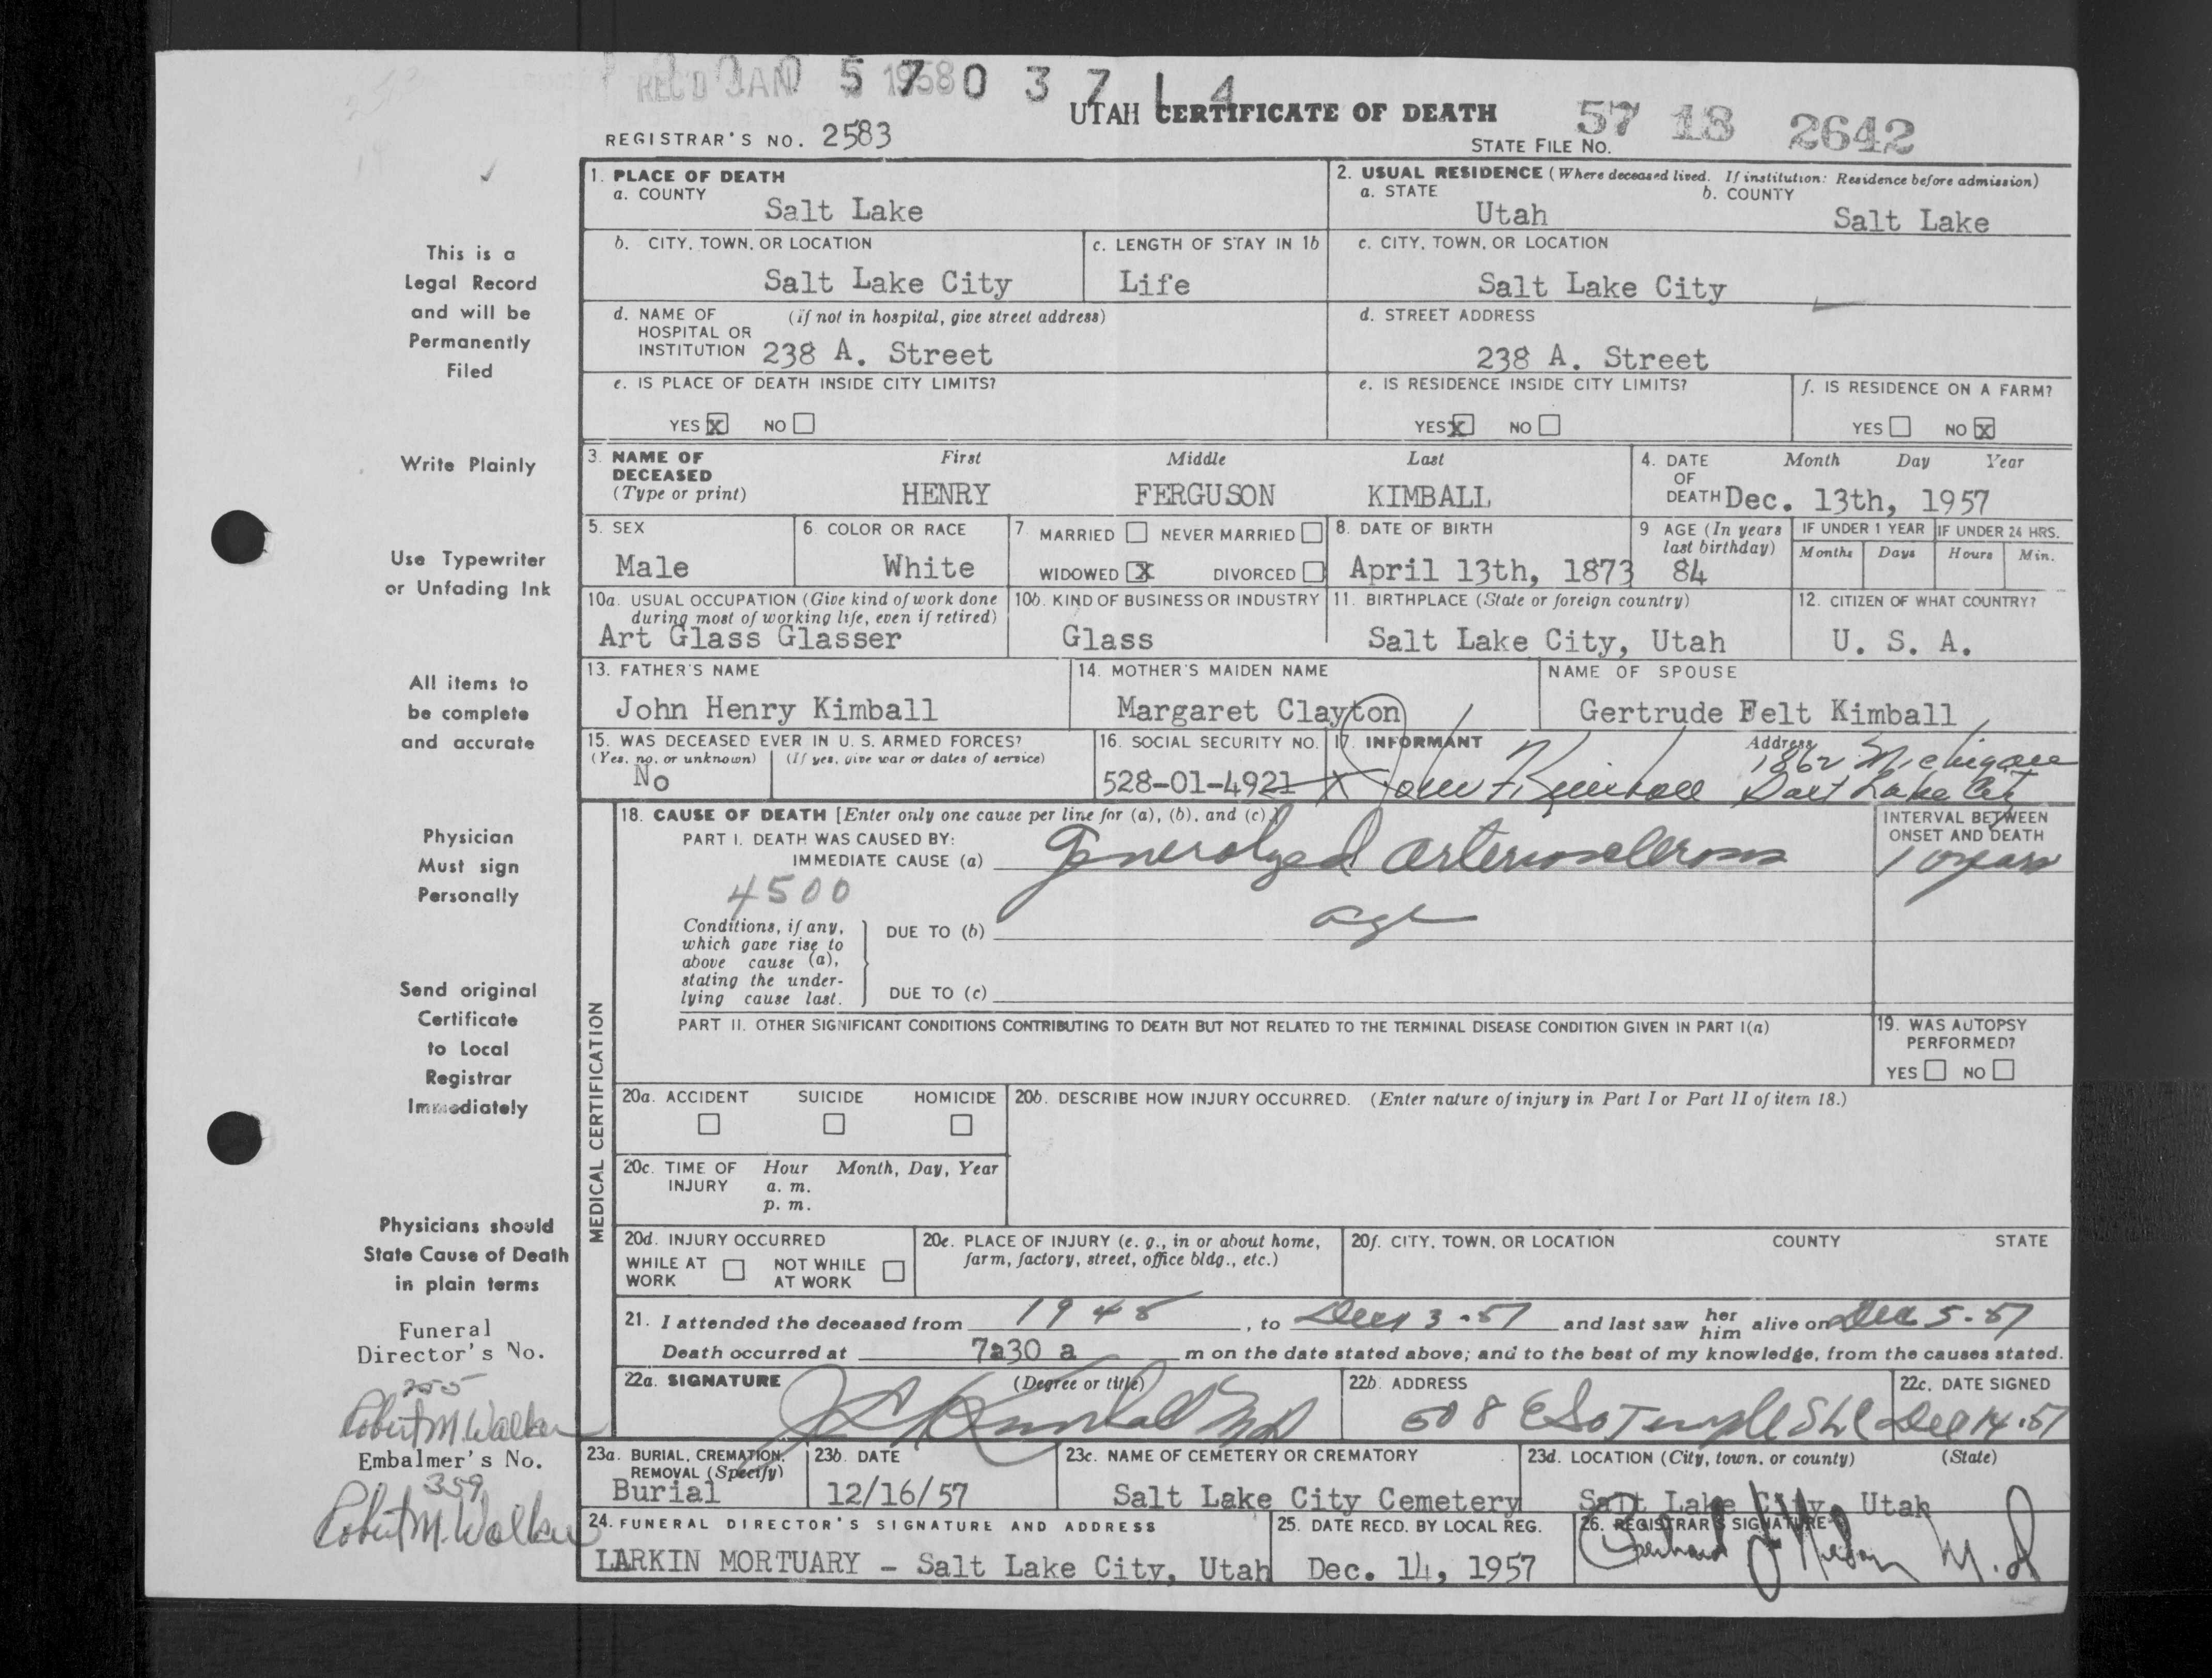 REC'D JAN 1958
5 7 0 3 7 1 4
UTAH CERTIFICATE OF DEATH
REGISTRAR'S NO. 2583
STATE FILE NO. 57 18 2642
1. PLACE OF DEATH
a. COUNTY
Salt Lake
2. USUAL RESIDENCE (Where deceased lived. If institution: Residence before admission)
a. STATE
Utah
b. COUNTY
Salt Lake
This is a
Legal Record
and will be
Permanently
Filed
b. CITY, TOWN, OR LOCATION
Salt Lake City
c. LENGTH OF STAY IN 1b
Life
c. CITY, TOWN, OR LOCATION
Salt Lake City
d. NAME OF HOSPITAL OR INSTITUTION
(if not in hospital, give street address)
238 A. Street
d. STREET ADDRESS
238 A. Street
e. IS PLACE OF DEATH INSIDE CITY LIMITS?
YES X NO
e. IS RESIDENCE INSIDE CITY LIMITS?
YES X NO
f. IS RESIDENCE ON A FARM?
YES NO X
Write Plainly
3. NAME OF DECEASED
(Type or print)
First Middle Last
HENRY FERGUSON KIMBALL
4. DATE OF DEATH
Month Day Year
Dec. 13th, 1957
Use Typewriter
or Unfading Ink
5. SEX
Male
6. COLOR OR RACE
White
7 MARRIED NEVER MARRIED
WIDOWED X DIVORCED
8. DATE OF BIRTH
April 13th, 1873
9 AGE (In years last birthday)
84
IF UNDER 1 YEAR
Months Days
IF UNDER 24 HRS.
Hours Min.
10a. USUAL OCCUPATION (Give kind of work done
during most of working life, even if retired)
Art Glass Glasser
10b. KIND OF BUSINESS OR INDUSTRY
Glass
11. BIRTHPLACE (State or foreign country)
Salt Lake City, Utah
12. CITIZEN OF WHAT COUNTRY?
U. S. A.
All items to
be complete
and accurate
13. FATHER'S NAME
John Henry Kimball
14. MOTHER'S MAIDEN NAME
Margaret Clayton
NAME OF SPOUSE
Gertrude Felt Kimball
15. WAS DECEASED EVER IN U. S. ARMED FORCES?
(Yes, no, or unknown) (If yes, give war or dates of service)
No
16. SOCIAL SECURITY NO.
528-01-4921
17. INFORMANT
X John F Kimball
Address
1862 Michigan
Salt Lake City
Physician
Must sign
Personally
MEDICAL CERTIFICATION
18. CAUSE OF DEATH [Enter only one cause per line for (a), (b), and (c).]
PART I. DEATH WAS CAUSED BY:
IMMEDIATE CAUSE (a) Generalyzed arteriosclerosis
INTERVAL BETWEEN
ONSET AND DEATH
10 years
4500
Conditions, if any,
which gave rise to
above cause (a),
stating the under-
lying cause last.
DUE TO (b) age
DUE TO (c)
Send original
Certificate
to Local
Registrar
Immediately
PART II. OTHER SIGNIFICANT CONDITIONS CONTRIBUTING TO DEATH BUT NOT RELATED TO THE TERMINAL DISEASE CONDITION GIVEN IN PART I(a)
19. WAS AUTOPSY
PERFORMED?
YES NO
20a. ACCIDENT SUICIDE HOMICIDE
20b. DESCRIBE HOW INJURY OCCURRED. (Enter nature of injury in Part I or Part II of item 18.)
20c. TIME OF INJURY
Hour Month, Day, Year
a. m.
p. m.
Physicians should
State Cause of Death
in plain terms
20d. INJURY OCCURRED
WHILE AT WORK NOT WHILE AT WORK
20e. PLACE OF INJURY (e. g., in or about home,
farm, factory, street, office bldg., etc.)
20f. CITY, TOWN, OR LOCATION COUNTY STATE
21. I attended the deceased from 1945, to Dec 13-57 and last saw her him alive on Dec 5-57
Death occurred at 7:30 a m on the date stated above; and to the best of my knowledge, from the causes stated.
Funeral
Director's No.
255
Robert M. Walker
Embalmer's No.
359
Robert M. Walker
22a. SIGNATURE (Degree or title)
Kimball MD
22b. ADDRESS
508 E So Temple SLC
22c. DATE SIGNED
Dec 14-57
23a. BURIAL, CREMATION,
REMOVAL (Specify)
Burial
23b. DATE
12/16/57
23c. NAME OF CEMETERY OR CREMATORY
Salt Lake City Cemetery
23d. LOCATION (City, town, or county) (State)
Salt Lake City, Utah
24. FUNERAL DIRECTOR'S SIGNATURE AND ADDRESS
LARKIN MORTUARY - Salt Lake City, Utah
25. DATE RECD. BY LOCAL REG.
Dec. 14, 1957
26. REGISTRAR'S SIGNATURE
M.D